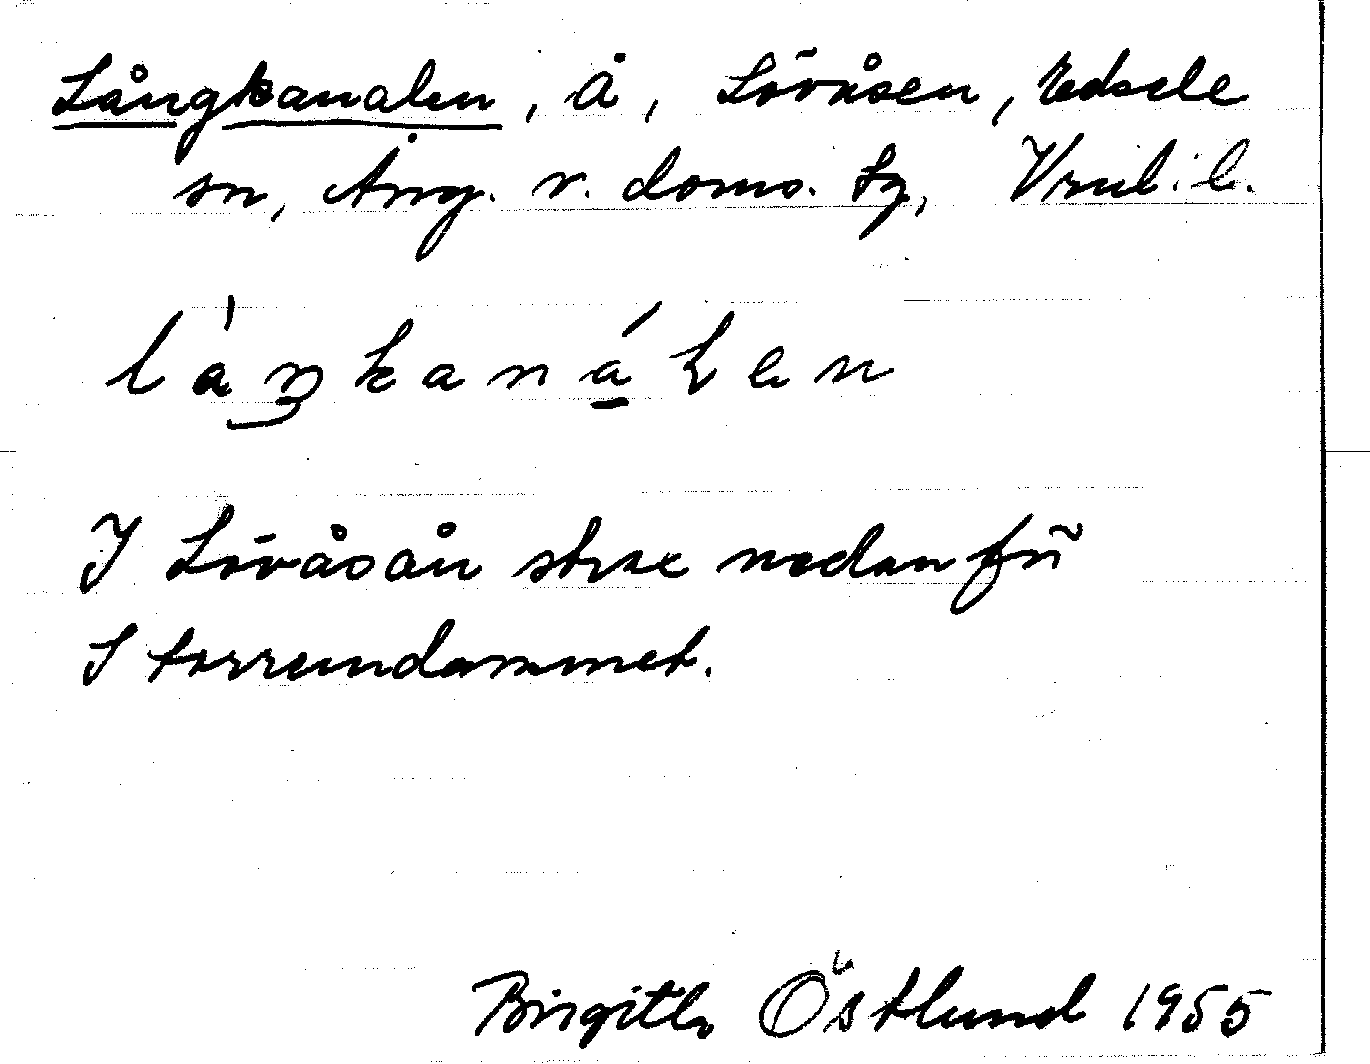 Långkanalen, Å, Lövåsen, Edsele
sn, Ång. v. doms. tg, Vrnl. l.
làŋkanáłen
I Lövåsån strax nedanför
Storremdammet.
Birgitta Östlund 1955